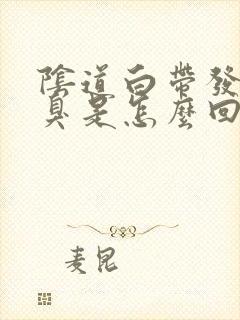 陰道白帶發
臭是怎麼回
麦昆